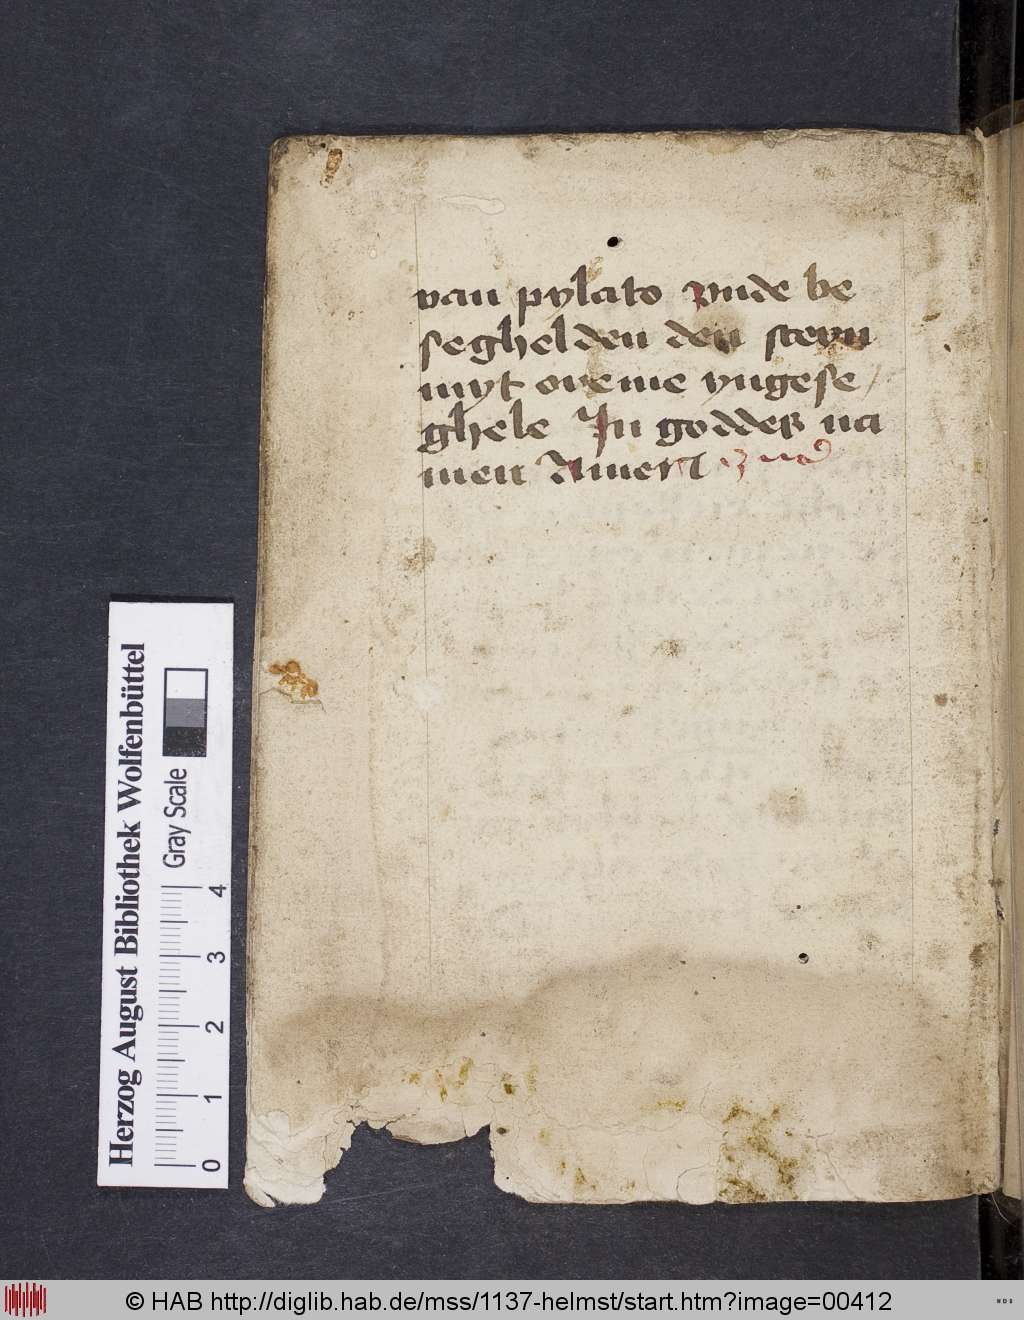 van pylato vnde be
seghelden den steyn
myt oreme yngese/
ghele In goddes na
men Amen
Herzog August Bibliothek Wolfenbüttel
Gray Scale
0 1 2 3 4
© HAB http://diglib.hab.de/mss/1137-helmst/start.htm?image=00412